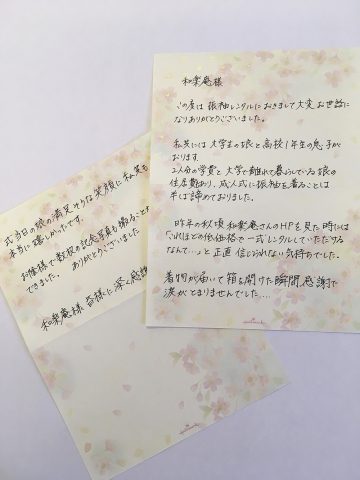 和楽庵様
この度は振袖レンタルにおきまして大変お世話に
なりありがとうございました。
私共には大学生の娘と高校1年生の息子が
おります
2人分の学費と大学で離れて暮らしている娘の
住居費あり、成人式に振袖を着ることは
半ば諦めておりました。
昨年の秋頃 和楽庵さんのHPを見た時には
「これほどの低価格で一式レンタルしていただける
なんて…」と正直信じられない気持ちでした。
着物が届いて箱を開けた瞬間、感謝で
涙がとまりませんでした…
式当日の娘の満足そうな笑顔に私共も
本当に嬉しかったです。
お陰様で数枚の記念写真も撮ることが
できました。
ありがとうございました
和楽庵様 皆様に 深く感謝